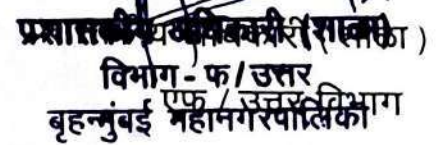 प्रशासकीय अधिकारी (शाळा)
विभाग - फ / उत्तर
एफ / उत्तर विभाग
बृहन्मुंबई महानगरपालिका